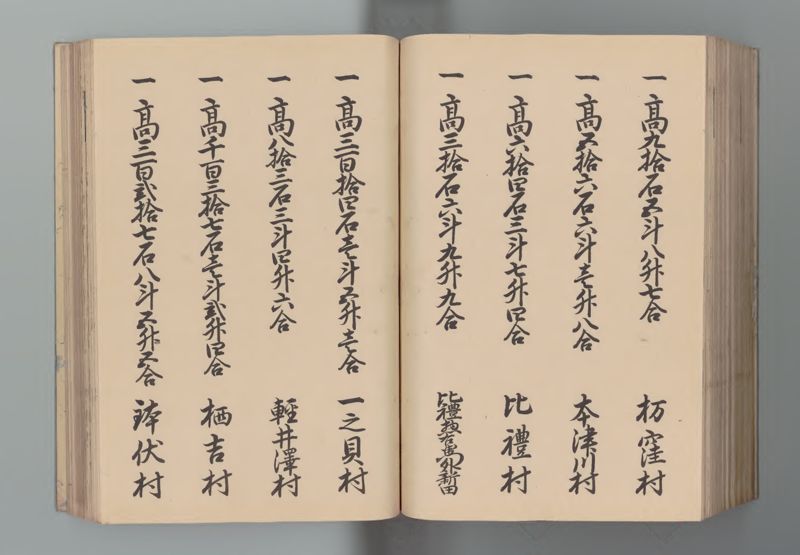 一 高九拾石五斗八升七合 杤窪村
一 高五拾六石六斗壱升八合 本津川村
一 高六拾四石三斗七升四合 比禮村
一 高三拾石六斗九升九合 比禮 新田
一 高三百拾四石壱斗五升壱合 一之貝村
一 高八拾三石三斗四升六合 軽井澤村
一 高千百三拾七石壱斗弐升四合 栖吉村
一 高三百弐拾七石八斗五升五合 鉢伏村